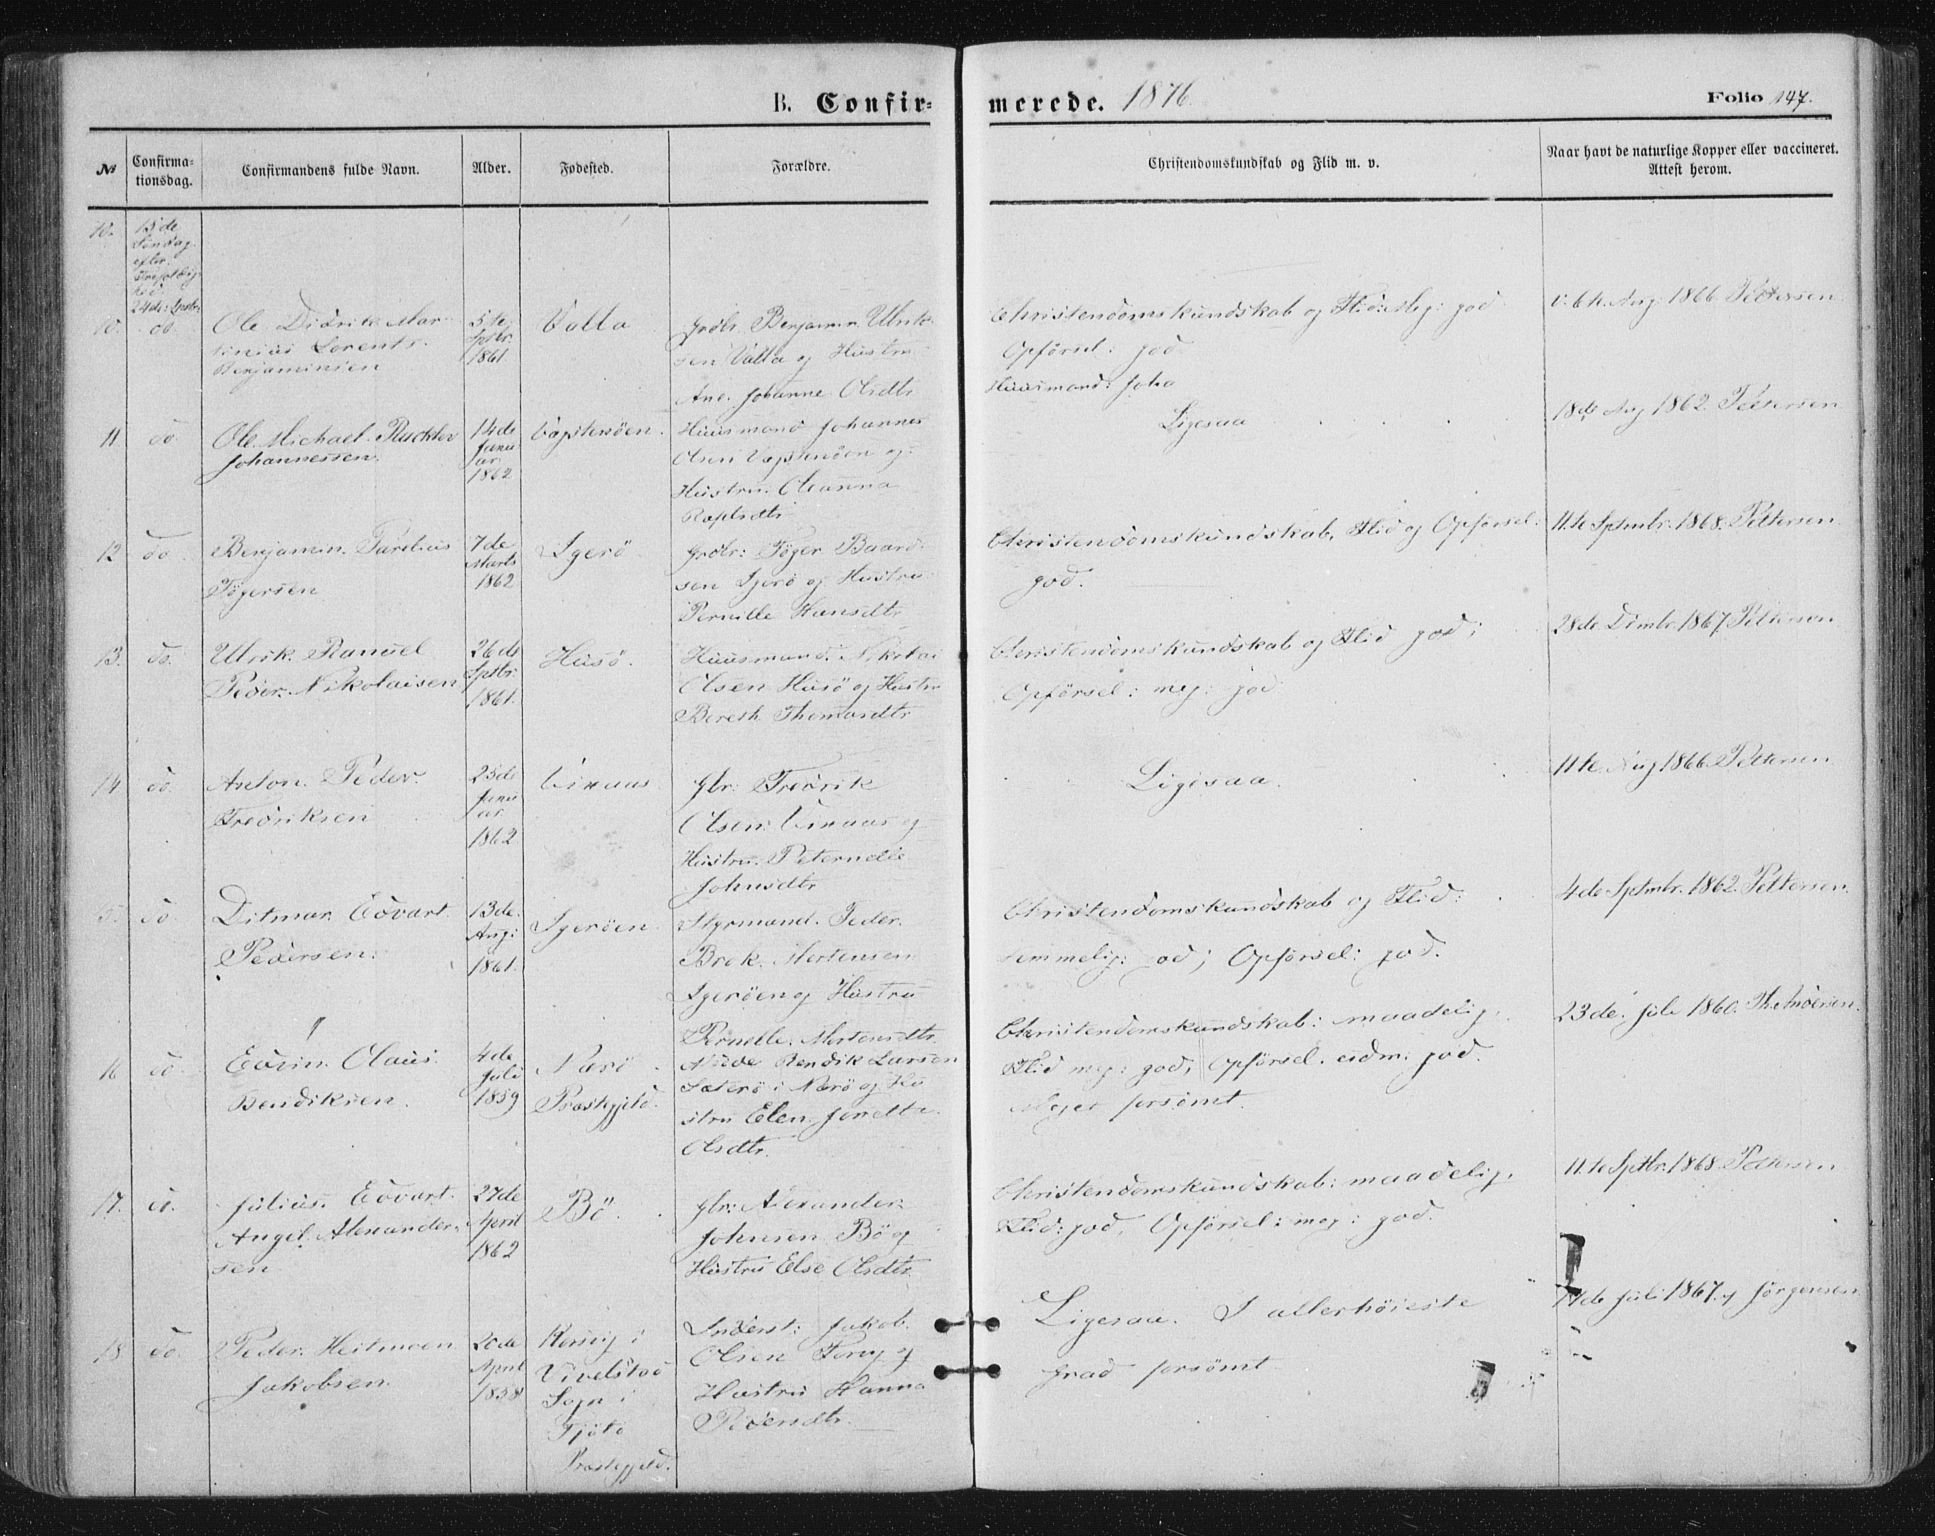 B. Confirmerede. 1876.
Folio 147.
№ Confirmationsdag. Confirmandens fulde Navn. Alder. Fødested. Forældre. Christendomskundskab og Flid m. v. Naar havt de naturlige Kopper eller vaccineret. Attest herom.
10. 15de
Søndag
efter
24de Septbr
10. do. Ole Didrik Mar- 5te Valla Grdbr. Benjamin Ulrik- Christendomskundskab og Flid: meg: god v. 6te Aug. 1866. Pettersen
tinius Lorents Septbr. sen Valla og Hustru Opførsel: god
Benjaminsen 1861. Ane Johanne Olsdtr. Huusmand: Joha
11. do. Ole Michael 14de Huusmand Johannes Ligesaa 18de Aug 1862. Pettersen
Johannessen. Janu- Olsen og
ar Hustru Oleanna
1862
12 do. Benjamin 7de Igerø Grdbr: Tøger Baard- Christendomskundskab, Flid og Opførsel: 11te Sptmbr. 1868. Pettersen
Tøgersen Marts sen Igerø og Hustru god.
1862 Pernille Hansdtr.
13. do. Ulrik 26de Husø. Huusmand Nikolai Christendomskundskab og Flid god; 28de Dcmbr. 1867. Pettersen
Peder Nikolaisen Septbr. Olsen Husø og Hustru Opførsel: meg: god
1861. Bereth Thomasdtr.
14 do. Anton Peder 25de Gbr: Fredrik Ligesaa. 11te Aug 1866. Pettersen
Fredriksen Janu- Olsen og
ar Hustru Peternelle
1862 Johnsdtr
15. do. Ditmar Edvart 13de Igerøen Styrmand Peder Christendomskundskab og Flid: 4de Sptmbr. 1862. Pettersen
Pedersen. Aug: Brok Mortensen temmelig god; Opførsel: god.
1861. Igerøen og Hustru
Pernelle Mortensdtr.
16 do. Edvin Olaus 4de Nærø Bendik Larsen Christendomskundskab: maadelig, 23de Juli 1860. Th. Andersen.
Bendiksen. Juli Præstgjeld. i Nærø og Hu- Flid meg: god; Opførsel: god.
1859 stru Elen Olsdtr. Meget forsømt.
17. do. Julius Edvart 27de Bø. Gbr: Alexander Christendomskundskab: maadelig, 11te Sptbr. 1868. Pettersen
Angel Alexander- April Johnsen Bø og Flid: god, Opførsel: meg: god.
sen 1862 Hustru Else Olsdtr.
18. do. Peder Heitmoen 20de i Inderst: Jakob Ligesaa. I allerhøieste 17de Juli 1867. Jørgensen
Jakobsen April Vivelstad Olsen og Grad forsømt
1858 Sogn i Hustru Hanna
Tjøtø Pedersdtr.
Præstegjeld.